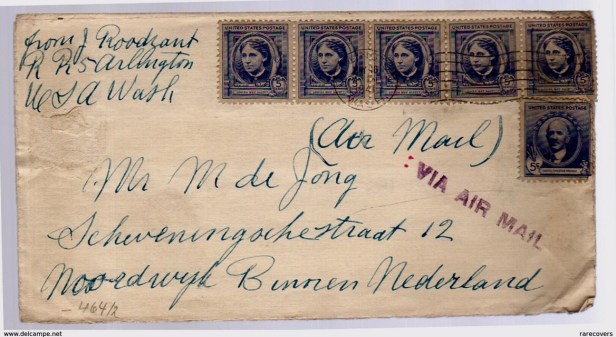 from J Roodzant
R R 5 Arlington
U S A Wash
UNITED STATES POSTAGE
UNITED STATES POSTAGE
UNITED STATES POSTAGE
UNITED STATES POSTAGE
UNITED STATES POSTAGE
UNITED STATES POSTAGE
5¢
(Air Mail)
VIA AIR MAIL
Mr M de Jong
Scheveningschestraat 12
Noordwijk Binnen Nederland
-464/2
www.delcampe.net
rarecovers